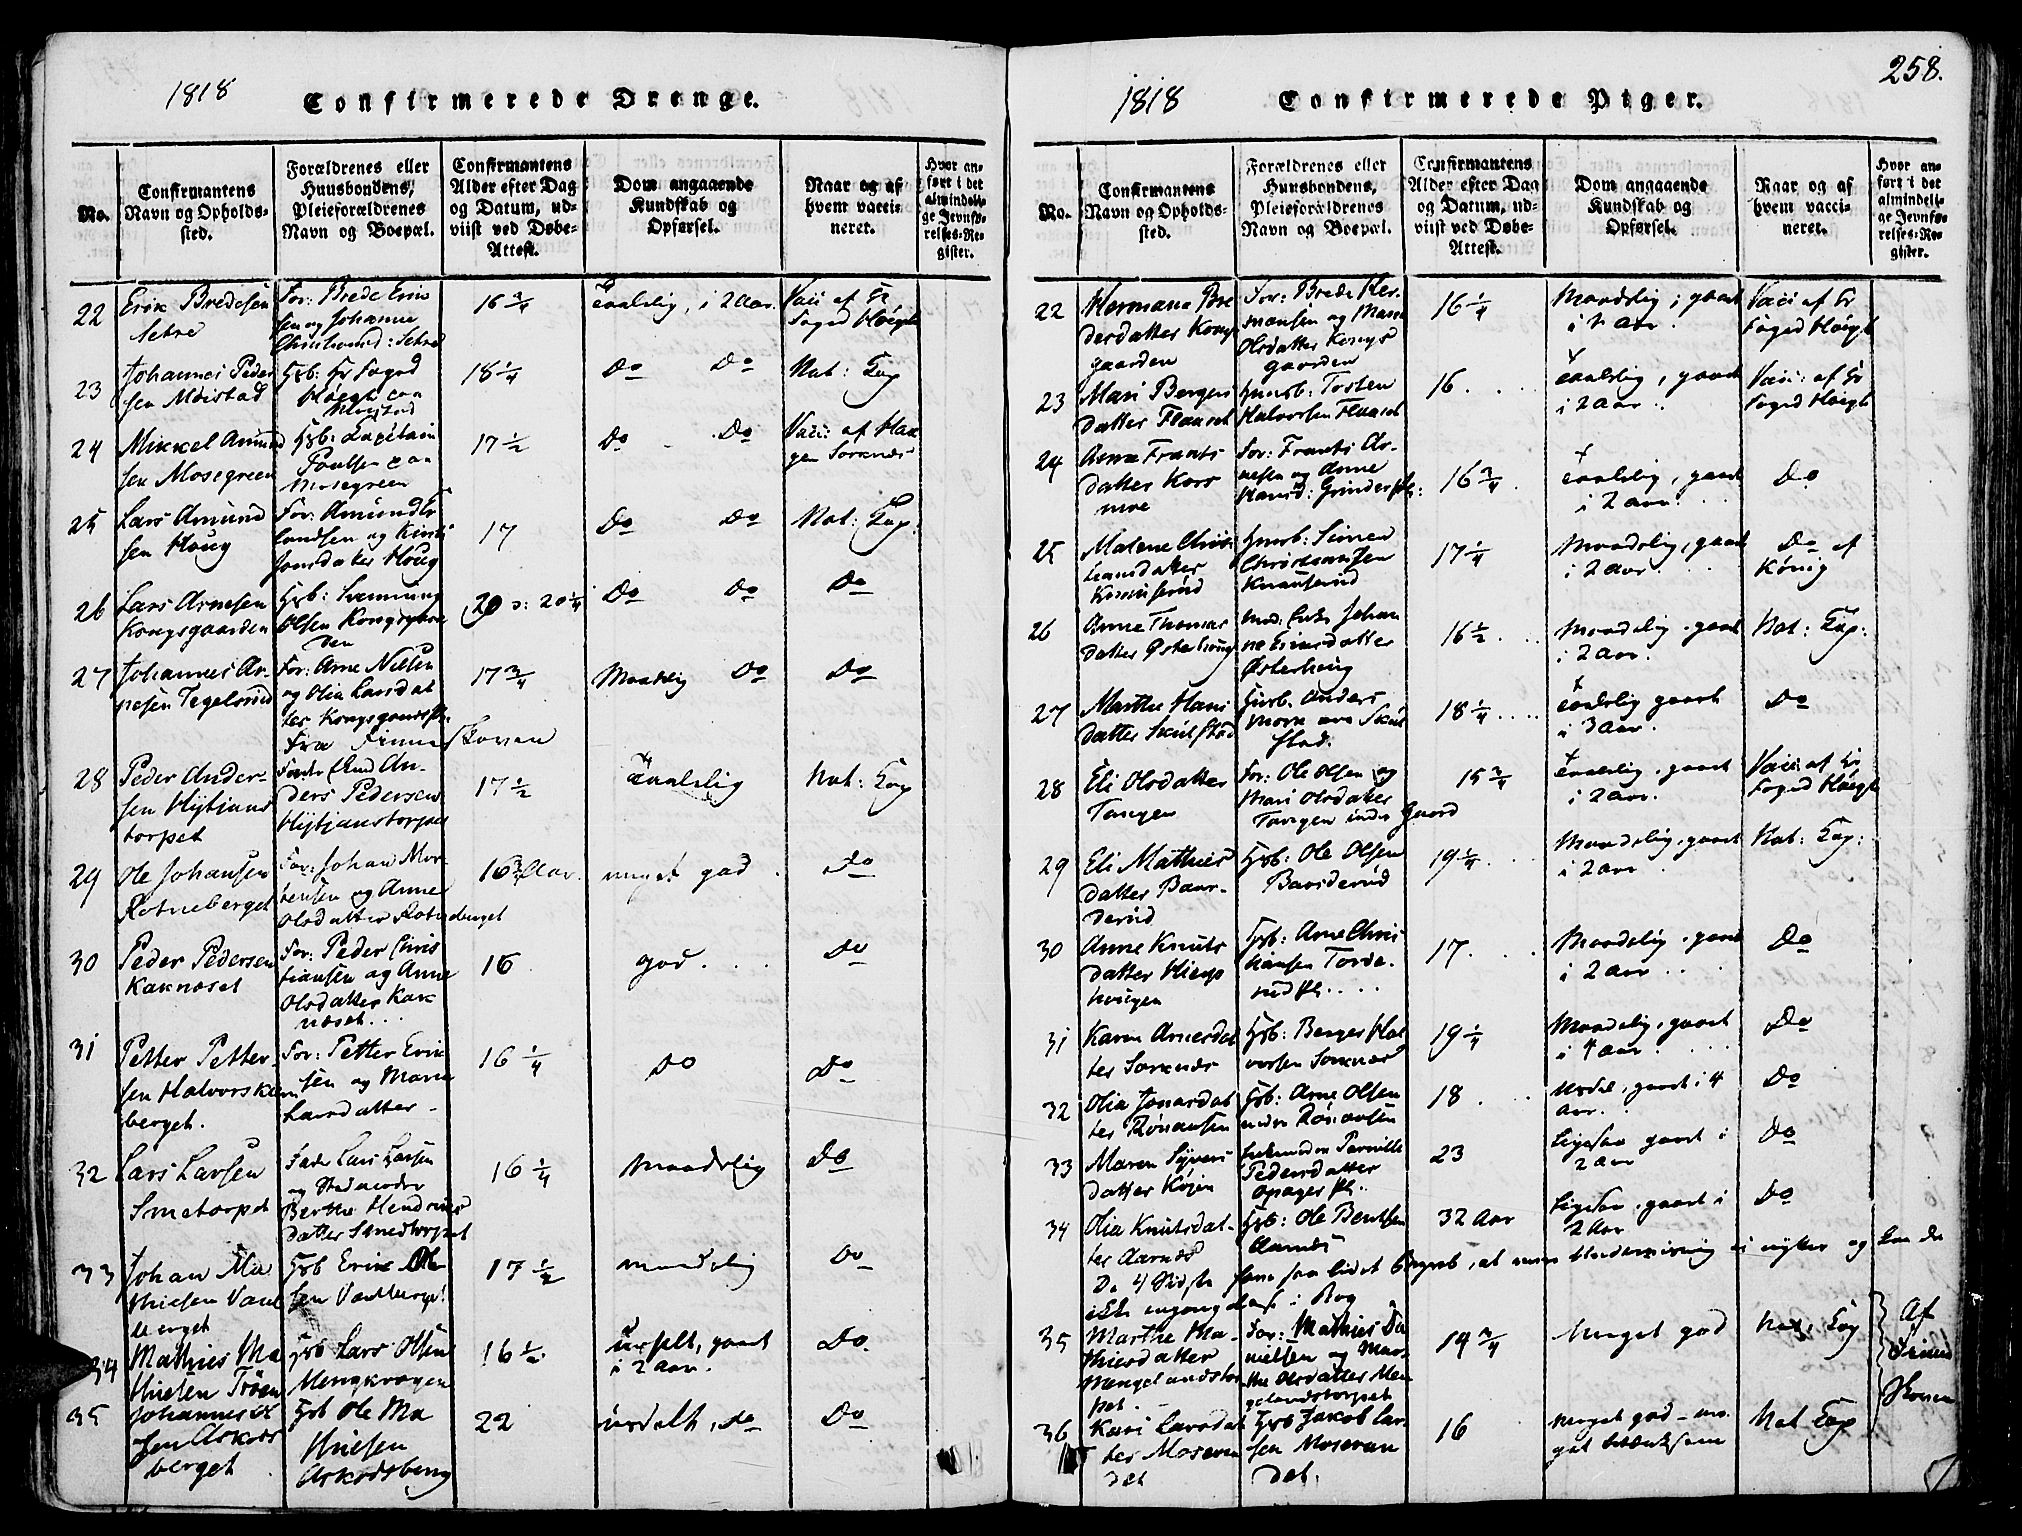 1818
Confirmerede Drenge.
No.
Confirmantens
Navn og Opholds-
sted.
Forældrenes eller
Huusbondens,
Pleieforældrenes
Navn og Boepæl.
Confirmantens
Alder efter Dag
og Datum, ud-
viist ved Døbe-
Attest.
Dom angaaende
Kundskab og
Opførsel.
Naar og af
hvem vacci-
neret.
Hvor an-
ført i det
almindeli-
ge Jevnfø-
relses-Re-
gister.
22
Erik Bredesen
Setre
For: Brede Erik
sen og Johanne
Setre
16 3/4
Taalelig, i 2 Aar.
Vacc af Hr
Foged Høigh
23
Johannes Peder
sen Moistad
Hsb: Hr Foged
Høigh paa
Moystad
18 1/4
Do Do
Nat: Kop
24
Mikkel Amund
sen Mosegreen
Hsb: Capitain
Poulsen paa
Mosegreen
17 1/2
Do Do
Vacc: af Haa
gen Sorknæs
25
Lars Amund
sen Houg
For: Amund Er
landsen og Kirsti
Jonsdatter Houg
17
Do Do
Nat: Kop:
26
Lars Arnesen
Kongsgaarden
Hsb: Svenning
Olsen Kongsgaar
den
20 : 20 1/4
Do Do
Do
27
Johannes Ar-
nesen Tegelsrud
For: Arne Nielsen
og Olia Larsdat
ter Kongsgaards Pl.
17 3/4
Maadelig Do
Do
Fra Finneskoven
28
Peder Ander-
sen Hytjans
torpet
Fader An-
ders Pedersen
Hytjanstorpet
17 1/2
Taalelig
Nat: Kop
29
Ole Johansen
Rotneberget
For: Johan Mor-
tensen og Anne
Olsdatter Rotneberget
16 3/4 Aar.
meget god
Do
30
Peder Pedersen
Kaknæset
For: Peder Chris
tiansen og Anne
Olsdatter Kak
næset
16
god
Do
31
Petter Petter-
sen Halvorska
berget.
For: Petter Erik
sen og Marie
Larsdatter
16 1/4
Do
Do
32
Lars Larsen
Smetorpet
Fader Lars Larsen
og Stedmoder
Berthe Hendrics
datter Smedtorpet
16 1/4
Maadelig
Do
33
Johan Ma
thiesen Vaal
berget
Hsb Erik Ol
sen
17 1/2
maadelig
Do
34
Mathies Ma
thiesen Trøen
Hsb Lars Olsen
Mengkrogen
16 1/2
uselt, gaaet
i 2 Aar.
Do
35
Johannes
sen Askos
berget
Hsb Ole Ma
thiesen
Askosberg
22
uselt, Do
Do
1818
Confirmerede Piger.
258.
No.
Confirmantens
Navn og Opholds-
sted.
Forældrenes eller
Huusbondens,
Pleieforældrenes
Navn og Boepæl.
Confirmantens
Alder efter Dag
og Datum, ud-
viist ved Døbe-
Attest.
Dom angaaende
Kundskab og
Opførsel.
Naar og af
hvem vacci-
neret.
Hvor an-
ført i det
almindeli-
ge Jevnfø-
relses-Re-
gister.
22
Hermana Bre
desdatter Kongs
gaarden
For: Brede Her
mansen og Mari
Olsdatter Kongs
gaarden
16 1/4
Maadelig, gaaet
i 2 Aar.
Vacc af Hr
Foged Høigh
23
Mari Bergers
datter Flaaset
Huusb: Torsten
Halvorsen Flaaset
16
Taalelig, gaaet
i 2 Aar
Vacc: af Hr
Foged Høigh
24
Anne Frants
datter Kors
moe
For: Frants Ar-
nesen og Anne
Hansd: Grinder Pl:
16 3/4
Taalelig, gaaet
i 2 Aar
Do
25
Malene Chris
tiansdatter
Knauserud
Huusb: Simen
Christiansen
Knauserud
17 1/4
Maadelig, gaaet
i 2 Aar
Do af
König
26
Anne Thomas
datter Østerhaug
Mod: Enke Johan
ne Einersdatter
Østerhaug
16 1/2
Maadelig gaaet
i 2 Aar.
Nat: Kop:
27
Marthe Hans
datter Skulstad
Huusb. Anders
Moen paa Skul
stad.
18 1/4
Taalelig gaaet
i 3 Aar.
Do
28
Eli Olsdatter
Tangen
For: Ole Olsen og
Mari Olsdatter
Tangen under Gaard
15 3/4
Taalelig, gaaet
i 2 Aar.
Vacc: af Hr
Foged Høigh
29
Eli Mathies
datter Baar-
derud
Hsb: Ole Olsen
Baarderud
19 1/4
Maadelig, gaaet
i 2 Aar
Nat: Kop:
30
Anne Knuts
datter
haugen
Hsb: Arne Chris
tiansen Torde-
rud Pl.
17
Maadelig gaaet
i 2 Aar
Do
31
Karen Arnesdat
ter Sorknæs
Hsb: Berger Hal
vorsen Sorknæs
19 1/4
Maadelig, gaaet
i 4 Aar
Do
32
Olia Jonasdat
ter Rønaasen
Hsb: Arne Olsen
nedre Rønaasen
18
Usel, gaaet i 4
Aar.
Do
33
Maren Syvers
datter Køjen
Pernille
Pedersdatter
Opager Pl.
23
Ligesaa gaaet i
2 Aar
Do
34
Olia Knutsdat-
ter Aarnæs
Hsb: Ole Bentsen
Aarnæs
32 Aar
Ligesaa, gaaet i
2 Aar
Do
De 4 sidste have saa lidet Begreb, at min Underviisning ei nytter og kan de
ikke engang læse i Bog
35
Marthe Ma-
thiesdatter
Mengelandstor
pet
For: Mathies Da
nielsen og Mar-
the Olsdatter Men
gelandstorpet
14 3/4
Meget god
Nat: Kop
Af
Finne
Skoven
36
Kari Larsdat
ter Moseran
det
Hsb Jakob Lar-
sen Moseran
det.
16
Meget god - me-
get
Nat Kop